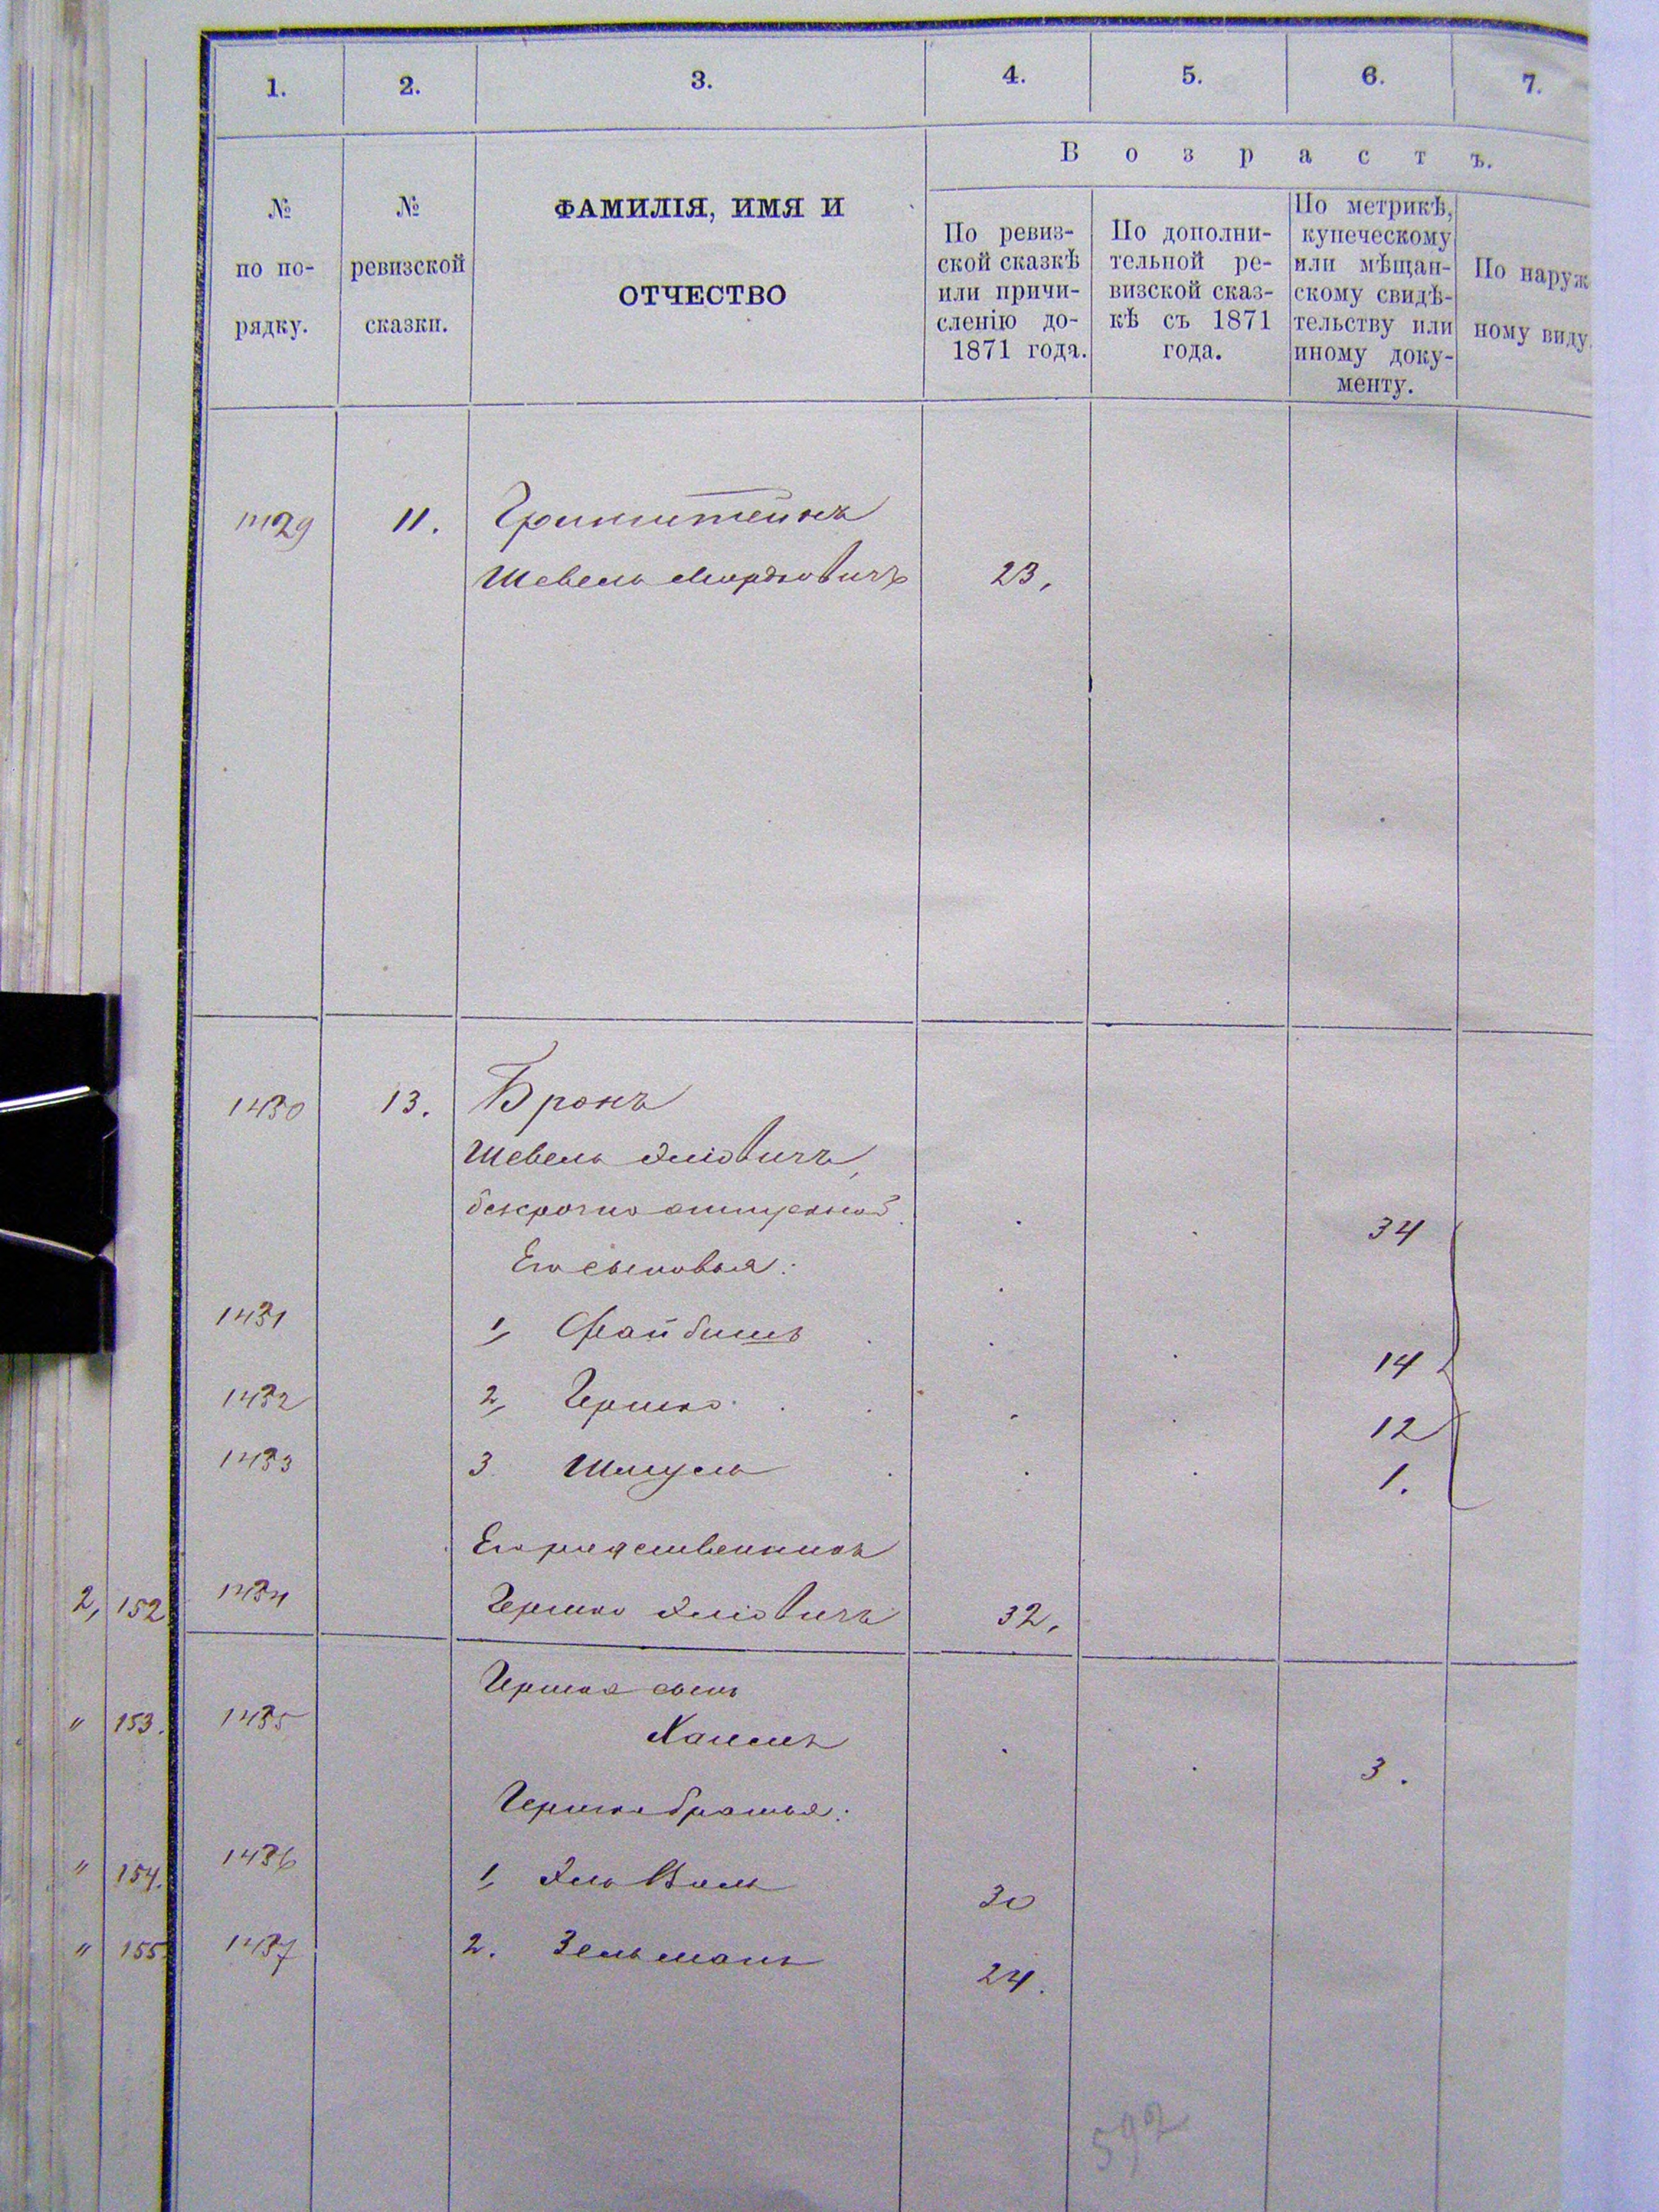 1. 2. 3. 4. 5. 6. 7.
Возрастъ.
№ по по-рядку.
№ ревизской сказки.
ФАМИЛІЯ, ИМЯ И
ОТЧЕСТВО
По ревиз-
ской сказкѣ
или причи-
сленію до-
1871 года.
По дополни-
тельной ре-
визской сказ-
кѣ съ 1871
года.
По метрикѣ,
купеческому
или мѣщан-
скому свидѣ-
тельству или
иному доку-
менту.
По наруж
ному виду.
1429 11. Гринштейнъ
Шевель Мордковичъ 23.
1430 13. Бронъ
Шевель Эліовичъ,
безсрочно отпускной. 34
Его сыновья:
1431 1, Файбишъ 14
1432 2, Гершко 12
1433 3. Шмуель 1.
Его родственникъ
2, 152 1434 Гершко Эліовичъ 32.
Гершка сынъ
" 153. 1435 Хаимъ 3.
Гершка братья:
" 154. 1436 1, 30
" 155. 1437 2. Зельманъ 24.
592